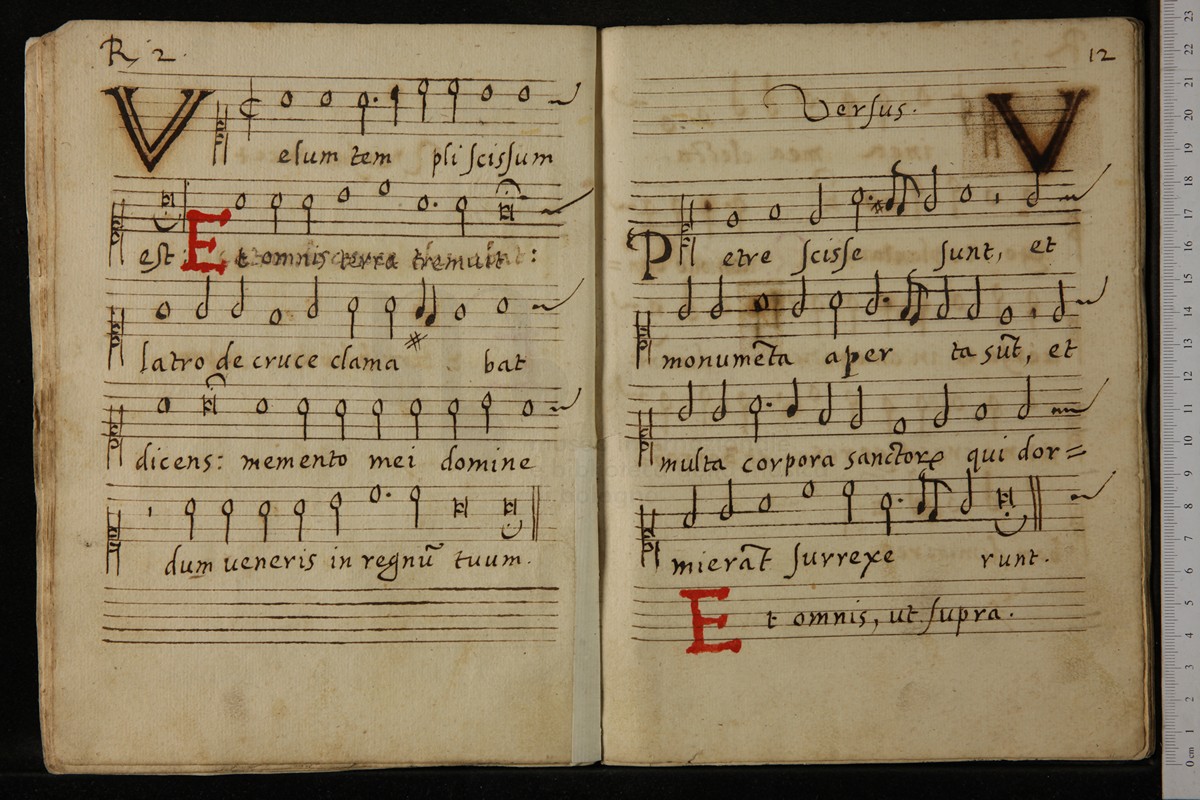 R. 2.
Velum tem pli scissum
est Et omnis terra tremuit :
latro de cruce clama bat
dicens: memento mei domine
dum veneris in regnū tuum.
12
Versus. V
Petre scisse sunt, et
monumēta aper ta sūt, et
multa corpora sanctorꝝ qui dor=
mierāt surrexe runt.
Et omnis, ut supra.